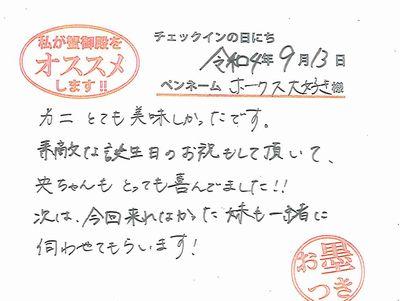 私が蟹御殿を
オススメ
します!!
チェックインの日にち
令和4年9月13日
ペンネーム ホークス大好き様
カニとても美味しかったです。
素敵な誕生日のお祝もして頂いて、
央ちゃんもとっても喜んでました!!
次は、今回来れなかった妹も一緒に
伺わせてもらいます!
お墨
つき